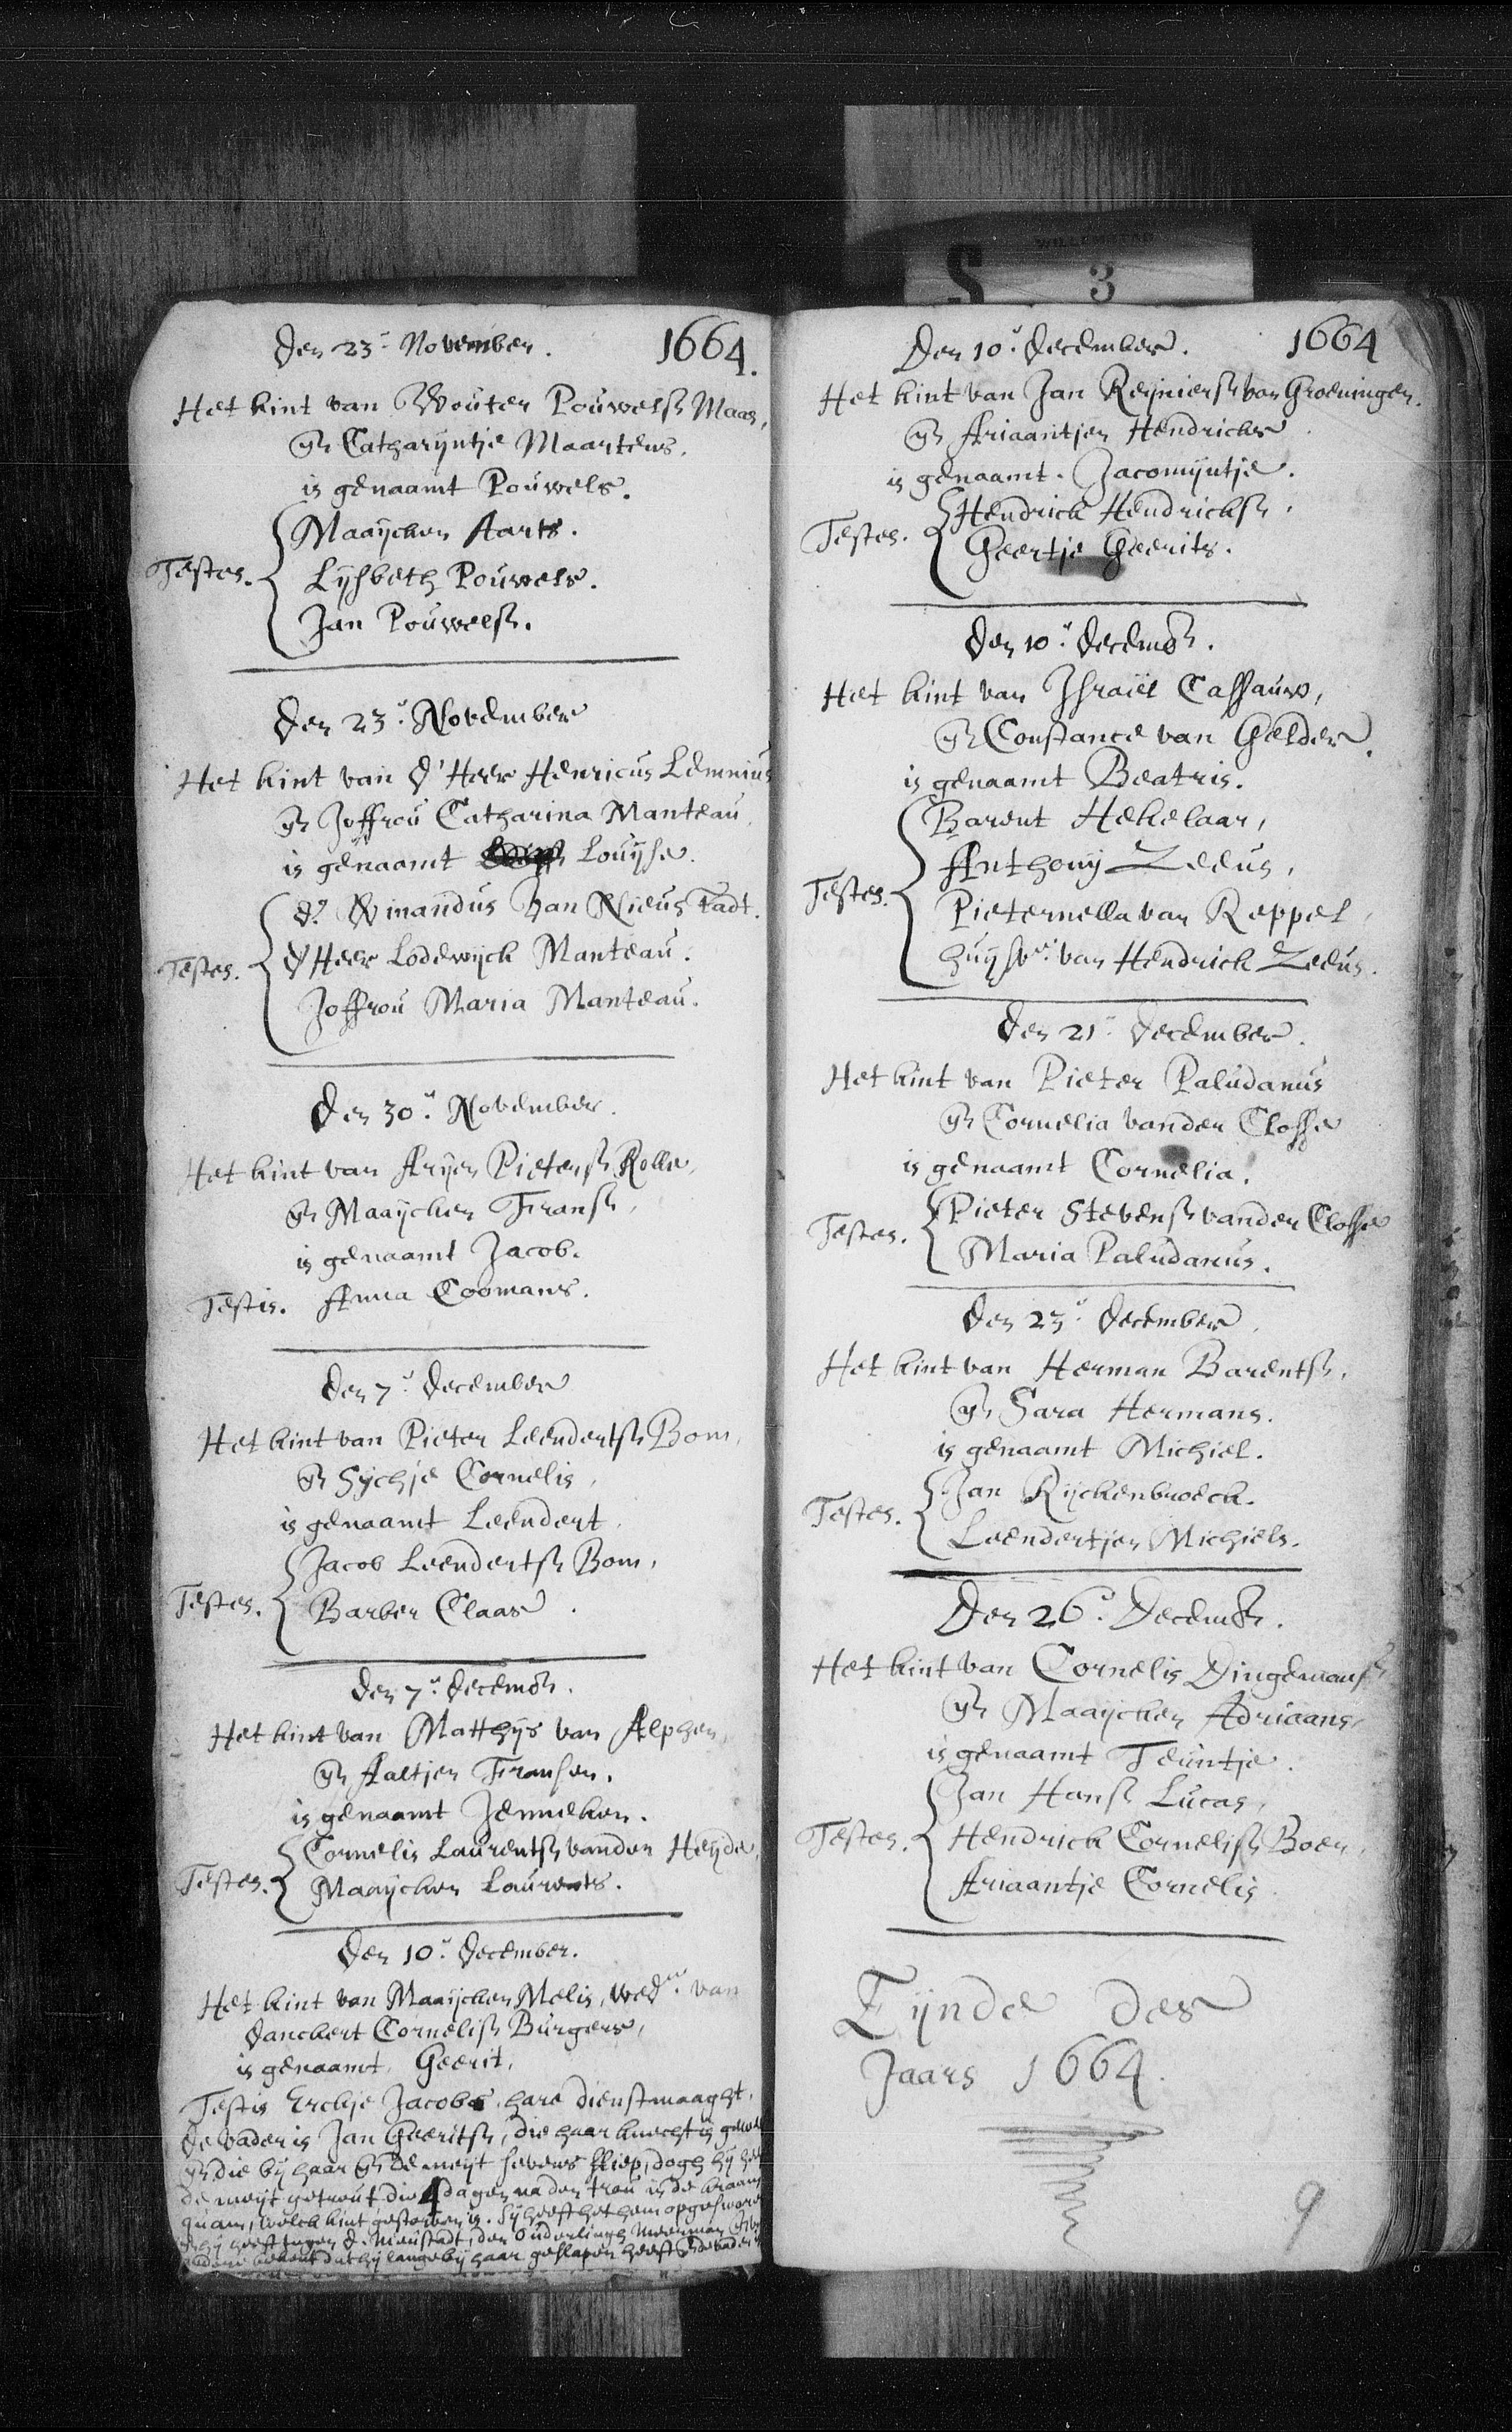 WILLEMSTAD
S 3
1664.
Den 23.' November.
Het kint van Wouter Pouwelsz Maas,
en Catharijntje Maartens.
is genaamt Pouwels.
Testes. Maaijcken Aarts.
Lijsbeth Pouwels.
Jan Pouwelsz.
Den 23.' November
Het kint van d'Heer Henricus Lemnius
en Joffrou Catharina Manteau
is genaamt Louijse.
Testes. d.o Winandus Van Nieustadt.
d'Heer Lodewijck Manteau.
Joffrou Maria Manteau.
Den 30.' November.
Het kint van Arijen Pietersz Kolle,
en Maaijcken Fransz,
is genaamt Jacob.
Testis. Anna Coomans.
Den 7.' December
Het kint van Pieter Leendertsz Bom,
en Sijchje Cornelis,
is genaamt Leendert.
Testes. Jacob Leendertsz Bom,
Barber Claas.
Den 7.' Decemb.
Het kint van Matthijs van Alphen,
en Aaltjen Fransen.
is genaamt Jenneken.
Testes. Cornelis Laurentsz vander Heijde,
Maaijcken Laurents.
Den 10.' December.
Het kint van Maaijcken Melis, wed.e van
Danckert Cornelisz Burgers,
is genaamt, Geerit,
Testis Erckje Jacobs, hare dienstmaaght.
De vader is Jan Geeritsz, die haar knecht is
en die bij haar en de meijt tevens sliep, dogh hij
de meijt getrout die 4 dagen na den trou in de kraam
quam, welck kint gestorven is. Sij heeft het hem opgesworen
hij heeft tegen d. Nieustadt, den Ouderlingh Moerman
bekent dat hij lange bij haar geslapen heeft
1664
Den 10.' December.
Het kint van Jan Reijniersz van Groeningen.
en Ariaantjen Hendricks.
is genaamt. Jacomijntje.
Testes. Hendrick Hendricksz,
Geertje Geerits.
Den 10.' Decemb.
Het kint van Israël Cassauw,
en Constance van Gelder.
is genaamt Beatris.
Testes. Barent Hekelaar,
Anthonij Zeeus,
Pieternella van Keppel,
huijsvr. van Hendrick Zeeus.
Den 21.' December.
Het kint van Pieter Paludanus
en Cornelia vander Closse
is genaamt Cornelia.
Testes. Pieter Stevensz vander Closse
Maria Paludanus.
Den 23.' December.
Het kint van Herman Barentsz,
en Sara Hermans.
is genaamt Michiel.
Testes. Jan Rijckenbroeck.
Leendertjen Michiels.
Den 26.' Decemb.
Het kint van Cornelis Dingemansz
en Maaijcken Adriaans,
is genaamt Teuntje.
Testes. Jan Hansz Lucas,
Hendrick Cornelisz Boer,
Ariaantje Cornelis
Eijnde des
Jaars 1664.
9